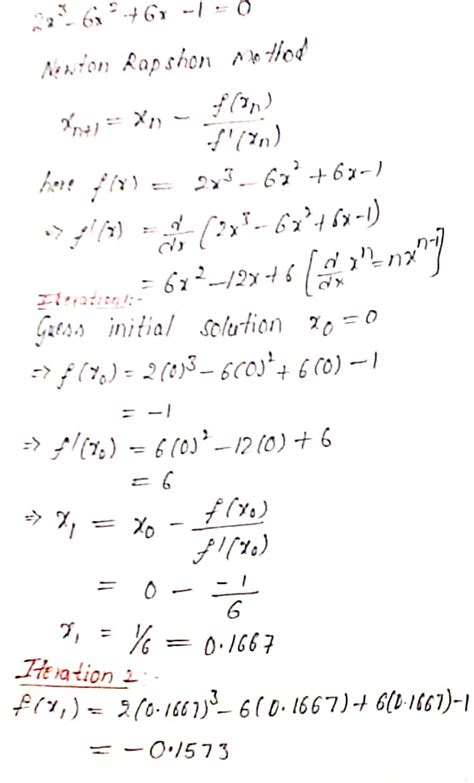 2x³ - 6x² + 6x - 1 = 0
Newton Rapshon Method
xₙ₊₁ = xₙ - f(xₙ)/f'(xₙ)
here f(x) = 2x³ - 6x² + 6x - 1
⇒ f'(x) = d/dx (2x³ - 6x² + 6x - 1)
= 6x² - 12x + 6 [d/dx xⁿ = nxⁿ⁻¹]
Iteration 1:-
Guess initial solution x₀ = 0
⇒ f(x₀) = 2(0)³ - 6(0)² + 6(0) - 1
= -1
⇒ f'(x₀) = 6(0)² - 12(0) + 6
= 6
⇒ x₁ = x₀ - f(x₀)/f'(x₀)
= 0 - -1/6
x₁ = 1/6 = 0.1667
Iteration 2:-
f(x₁) = 2(0.1667)³ - 6(0.1667) + 6(0.1667) - 1
= -0.1573